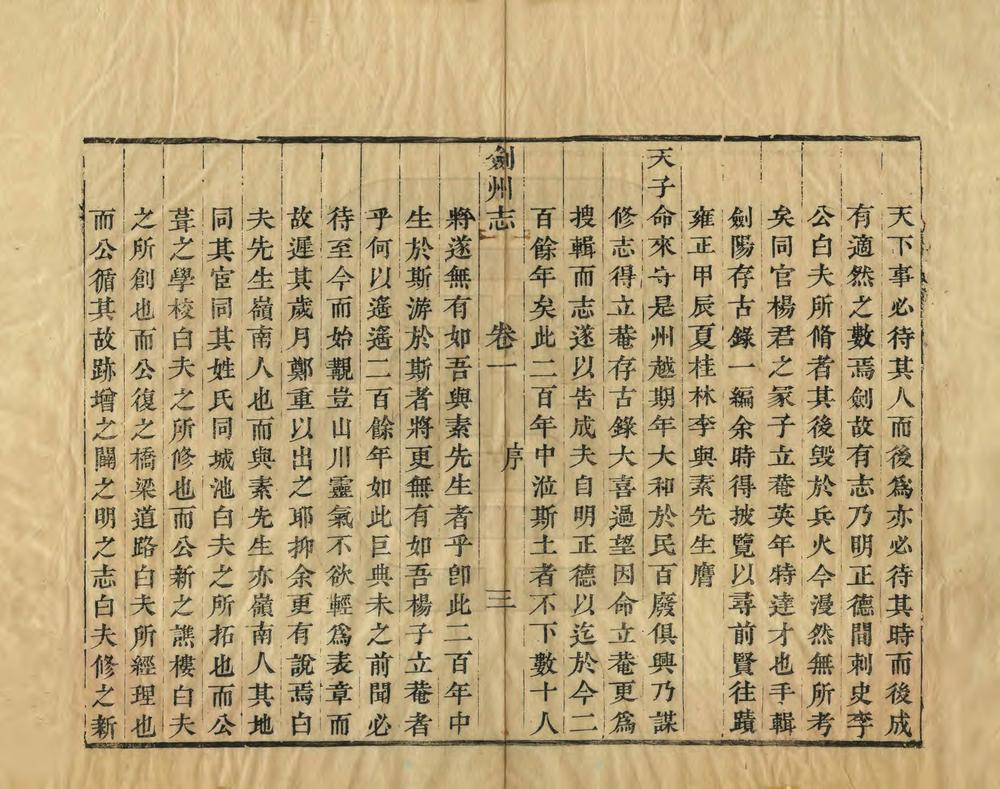 天下事必待其人而後爲亦必待其時而後成
有適然之數焉劍故有志乃明正德間刺史李
公白夫所脩者其後毀於兵火今漫然無所考
矣同官楊君之冡子立菴英年特達才也手輯
劍陽存古錄一編余時得披覽以尋前賢往蹟
雍正甲辰夏桂林李與素先生膺
天子命來守是州越期年大和於民百廢俱興乃謀
修志得立菴存古錄大喜過望因命立菴更爲
搜輯而志遂以吿成夫自明正德以迄於今二
百餘年矣此二百年中涖斯土者不下數十人
劍州志 卷一 序 三
將遂無有如吾與素先生者乎卽此二百年中
生於斯游於斯者將更無有如吾楊子立菴者
乎何以遙遙二百餘年如此巨典未之前聞必
待至今而始覩豈山川靈氣不欲輕爲表章而
故遲其歲月鄭重以出之耶抑余更有說焉白
夫先生嶺南人也而與素先生亦嶺南人其地
同其宦同其姓氏同城池白夫之所拓也而公
葺之學校白夫之所修也而公新之譙樓白夫
之所創也而公復之橋梁道路白夫所經理也
而公循其故跡增之闢之明之志白夫修之新